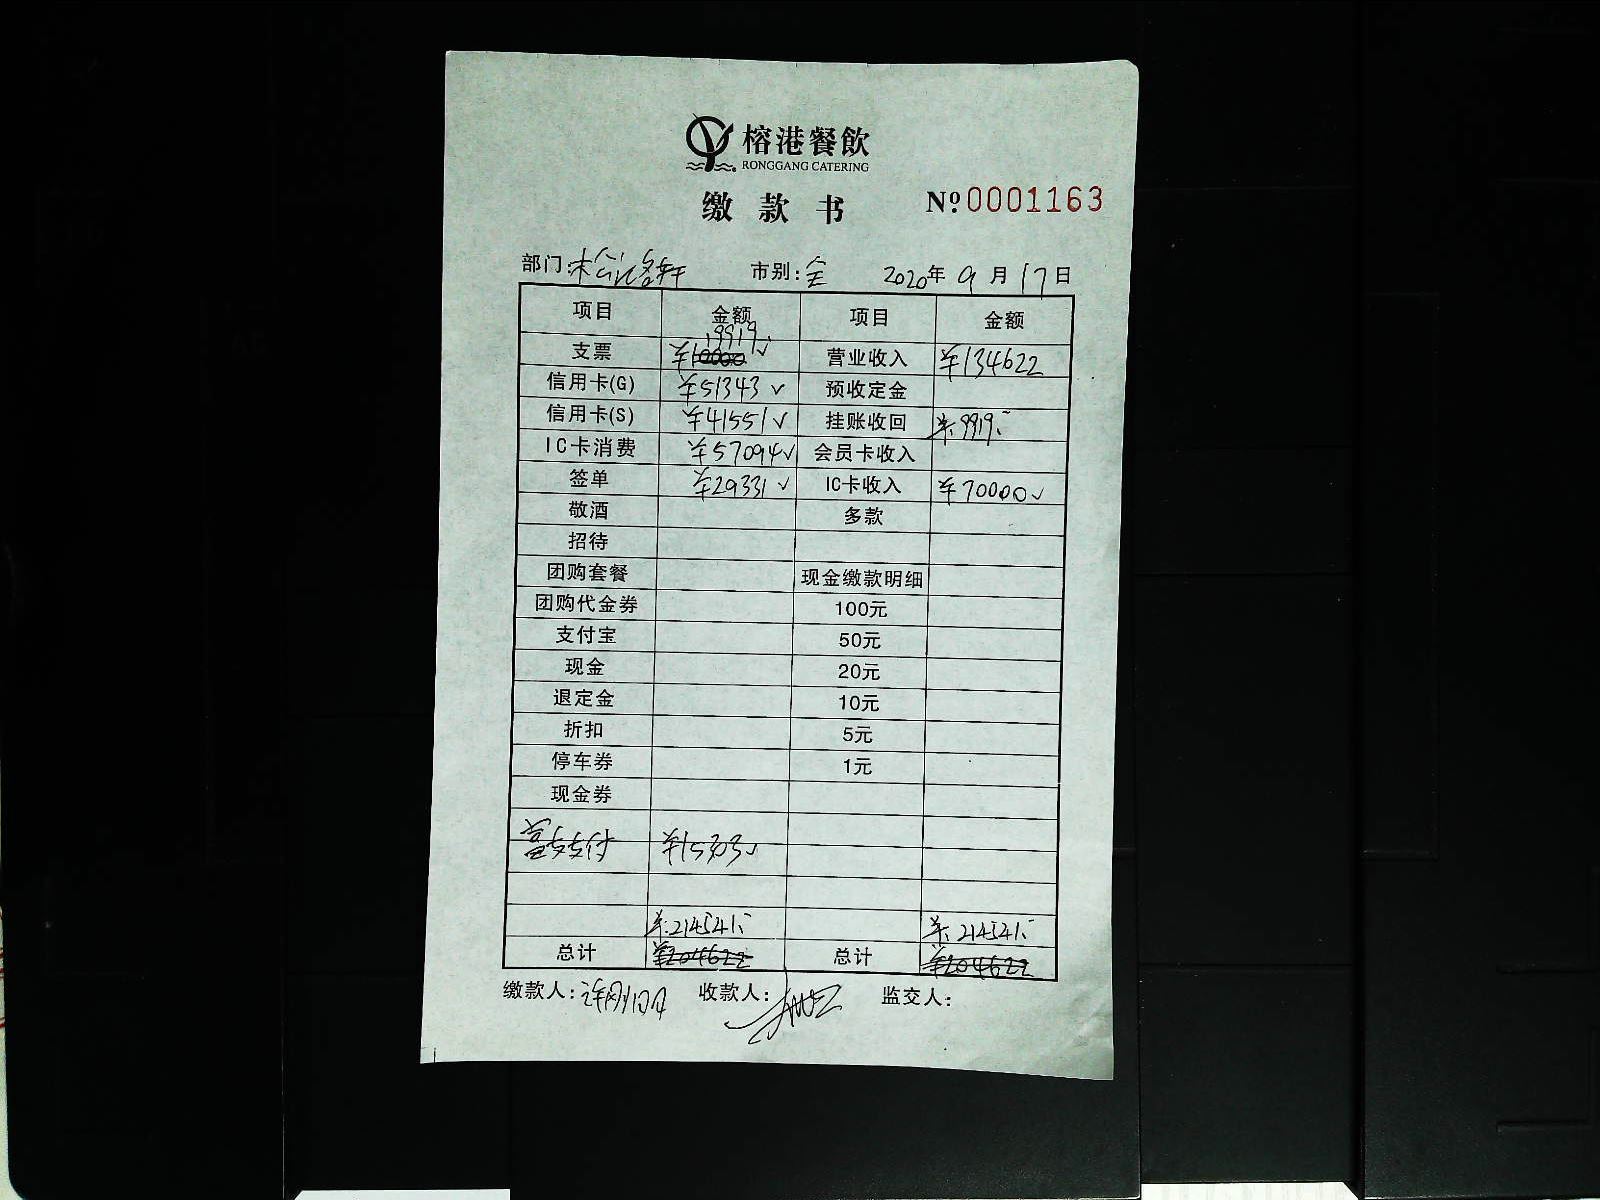 榕港餐飲
RONGGANG CATERING
缴款书 Nº 0001163
部门: 市别:全 2020年9月17日
项目 金额 项目 金额
支票 ¥19919 营业收入 ¥134622
信用卡(G) ¥51343 预收定金
信用卡(S) ¥41551 挂账收回 ¥9919
IC卡消费 ¥57094 会员卡收入
签单 ¥29331 IC卡收入 ¥70000
敬酒 多款
招待
团购套餐 现金缴款明细
团购代金券 100元
支付宝 50元
现金 20元
退定金 10元
折扣 5元
停车券 1元
现金券
富友支付 ¥15303
¥214541 ¥214541
总计 ¥204622 总计 ¥204622
缴款人: 收款人: 监交人: